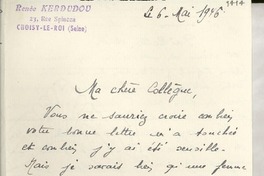 Renée KERDUDOU
23, Rue Spinoza
CHOISY-LE-ROI (Seine)
Le 6 Mai 1946
Ma chère Collègue,
Vous ne sauriez croire combien
votre bonne lettre m'a touchée
et combien j'y ai été sensible.
Mais je savais bien qu'une femme